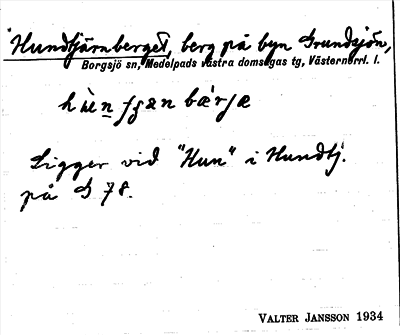 Hundtjärnberget, berg på byn Grundsjön,
Borgsjö sn, Medelpads västra domsagas tg, Västernorrl. l.
Ligger vid "Hun" i Hundtj.
på G 78.
VALTER JANSSON 1934